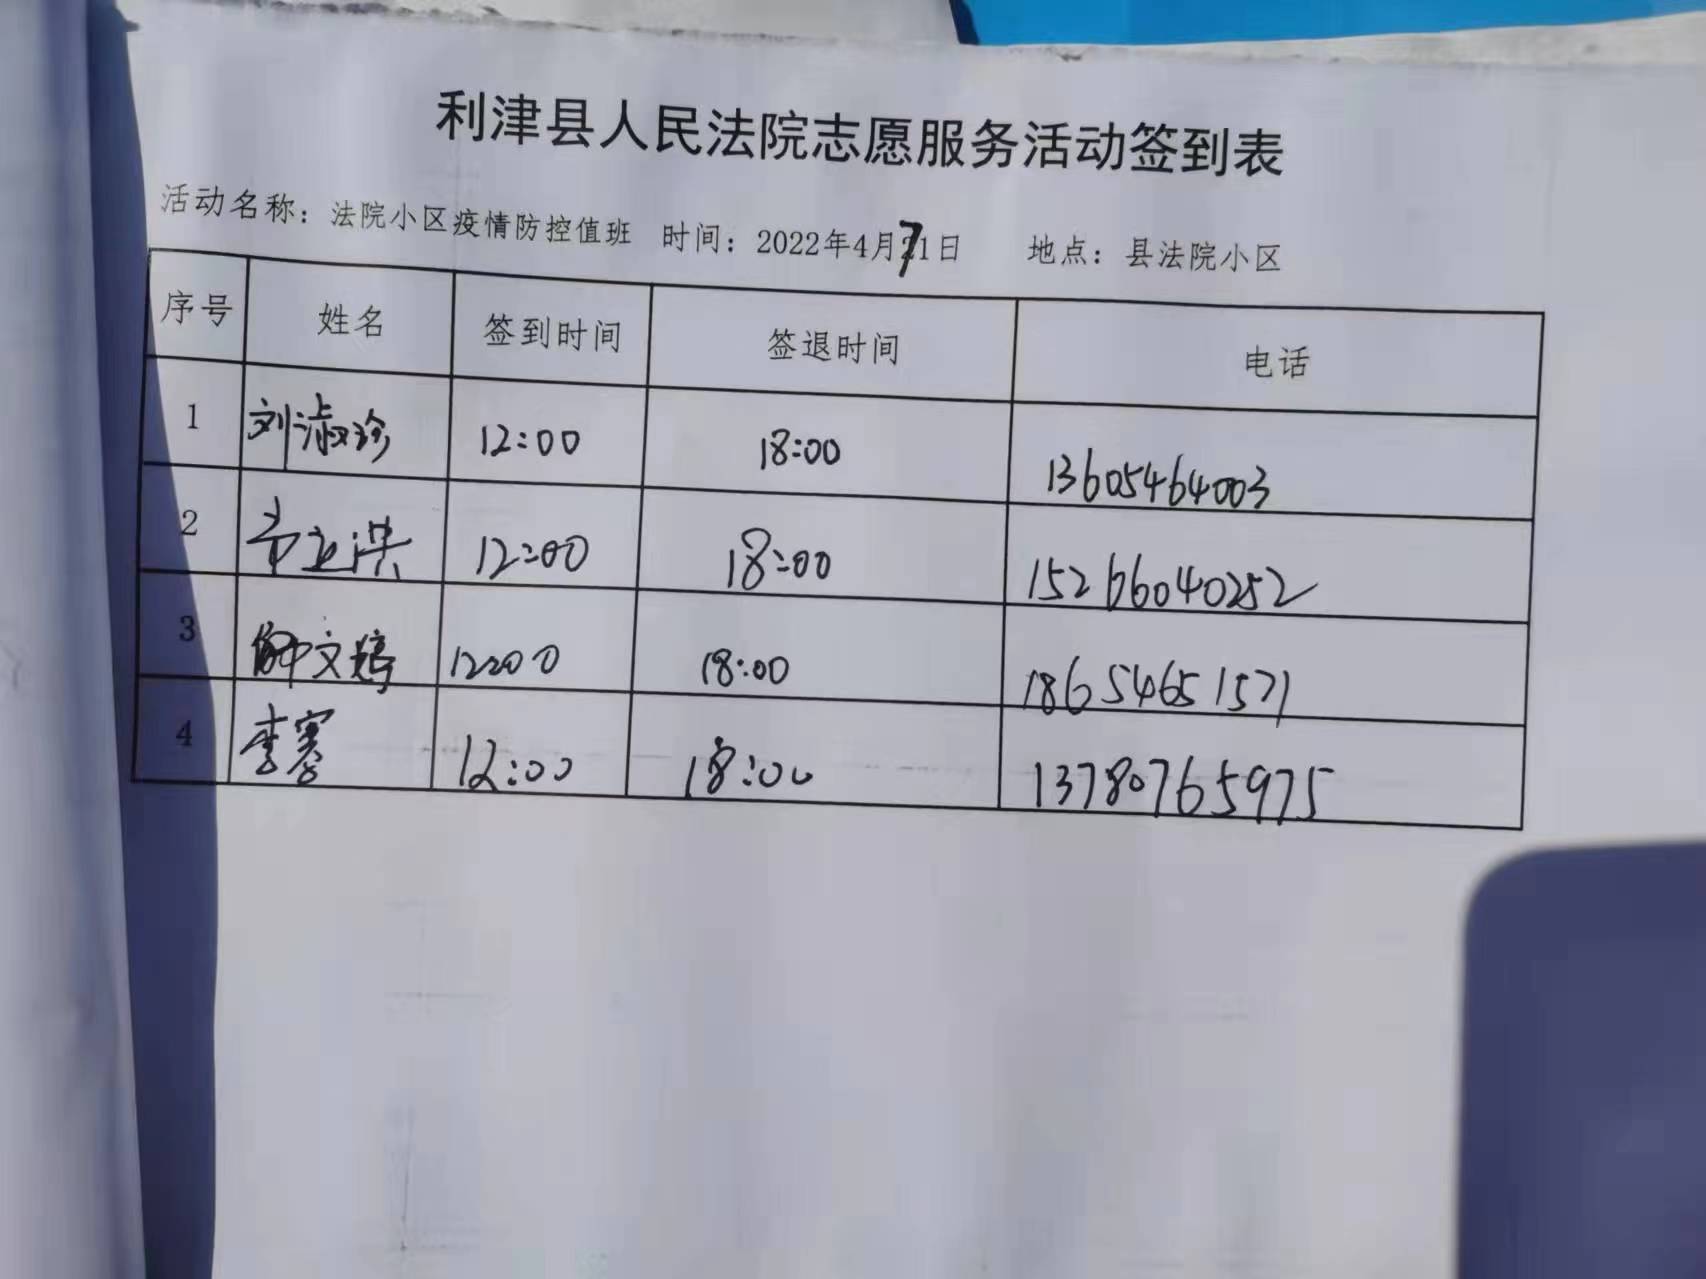 利津县人民法院志愿服务活动签到表
活动名称：法院小区疫情防控值班 时间：2022年4月71日 地点：县法院小区
序号 姓名 签到时间 签退时间 电话
1 刘淑珍 12:00 18:00 13605464003
2 12:00 18:00 15266040252
3 文婷 12:00 18:00 18654651571
4 李赛 12:00 18:00 13780765975